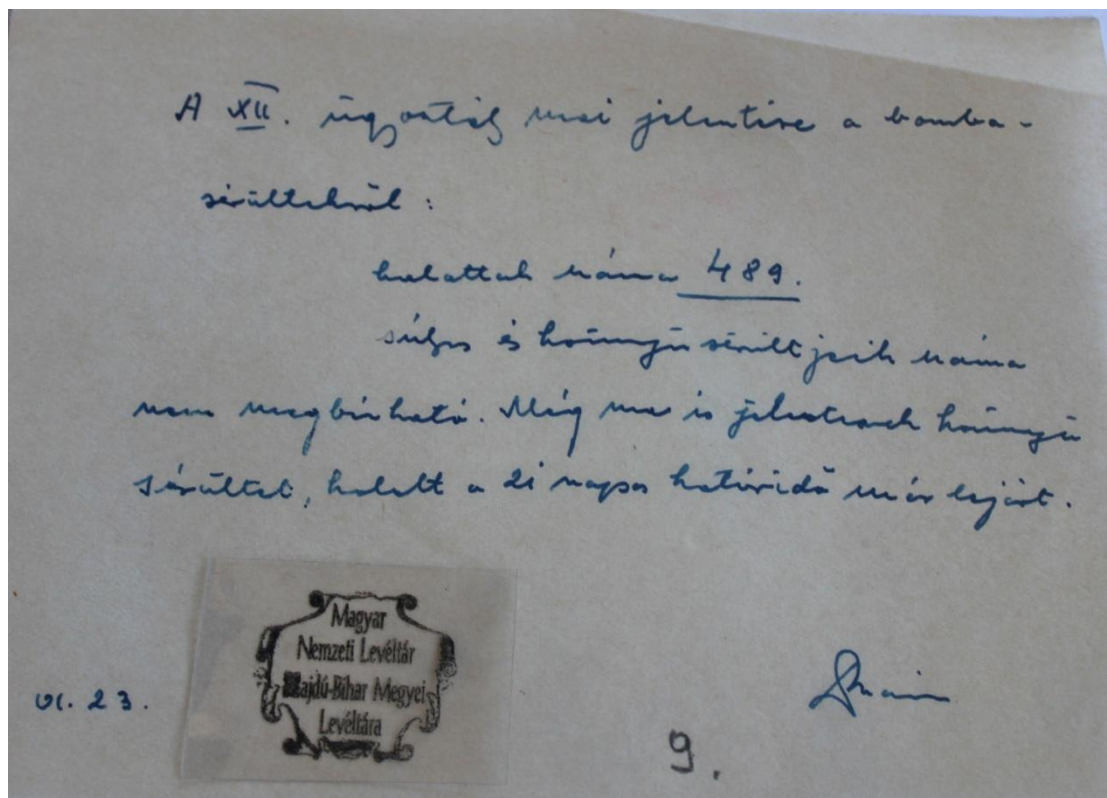 A XII. ügyosztály mai jelentése a bomba-
sérültekről:
halottak száma 489.
súlyos és könnyű sérültjeik száma
nem megbízható. Még ma is jelentenek könnyű
sérültet, holott a 21 napos határidő már lejárt.
Magyar
Nemzeti Levéltár
Hajdú-Bihar Megyei
Levéltára
VI. 23.
9.